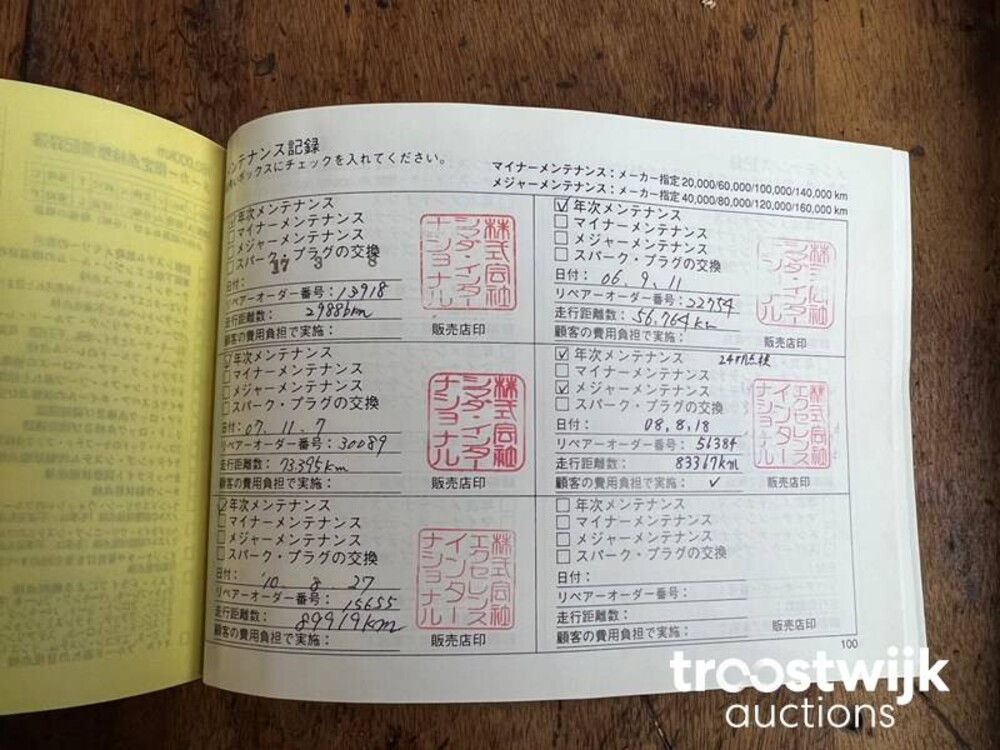 メンテナンス記録
ボックスにチェックを入れてください。
マイナーメンテナンス：メーカー指定 20,000/60,000/100,000/140,000 km
メジャーメンテナンス：メーカー指定 40,000/80,000/120,000/160,000 km
年次メンテナンス
マイナーメンテナンス
メジャーメンテナンス
スパーク・プラグの交換
17 3 8
日付：
リペアーオーダー番号：13918
走行距離数：29886km
顧客の費用負担で実施：
株式会社
シュダ・インター
ナショナル
販売店印
年次メンテナンス
マイナーメンテナンス
メジャーメンテナンス
スパーク・プラグの交換
日付：06.9.11
リペアーオーダー番号：22754
走行距離数：56,764km
顧客の費用負担で実施：
販売店印
年次メンテナンス
マイナーメンテナンス
メジャーメンテナンス
スパーク・プラグの交換
日付：07.11.7
リペアーオーダー番号：30089
走行距離数：73395km
顧客の費用負担で実施：
株式会社
インター
ナショナル
販売店印
年次メンテナンス 24ヶ月点検
マイナーメンテナンス
メジャーメンテナンス
スパーク・プラグの交換
日付：08.8.18
リペアーオーダー番号：56384
走行距離数：83367km
顧客の費用負担で実施：✓
株式会社
エクセレンス
インター
ナショナル
販売店印
年次メンテナンス
マイナーメンテナンス
メジャーメンテナンス
スパーク・プラグの交換
日付：'10.8.27
リペアーオーダー番号：15655
走行距離数：89919km
顧客の費用負担で実施：
株式会社
エクセレンス
インター
ナショナル
販売店印
年次メンテナンス
マイナーメンテナンス
メジャーメンテナンス
スパーク・プラグの交換
日付：
リペアーオーダー番号：
走行距離数：
顧客の費用負担で実施：
販売店印
100
troostwijk
auctions